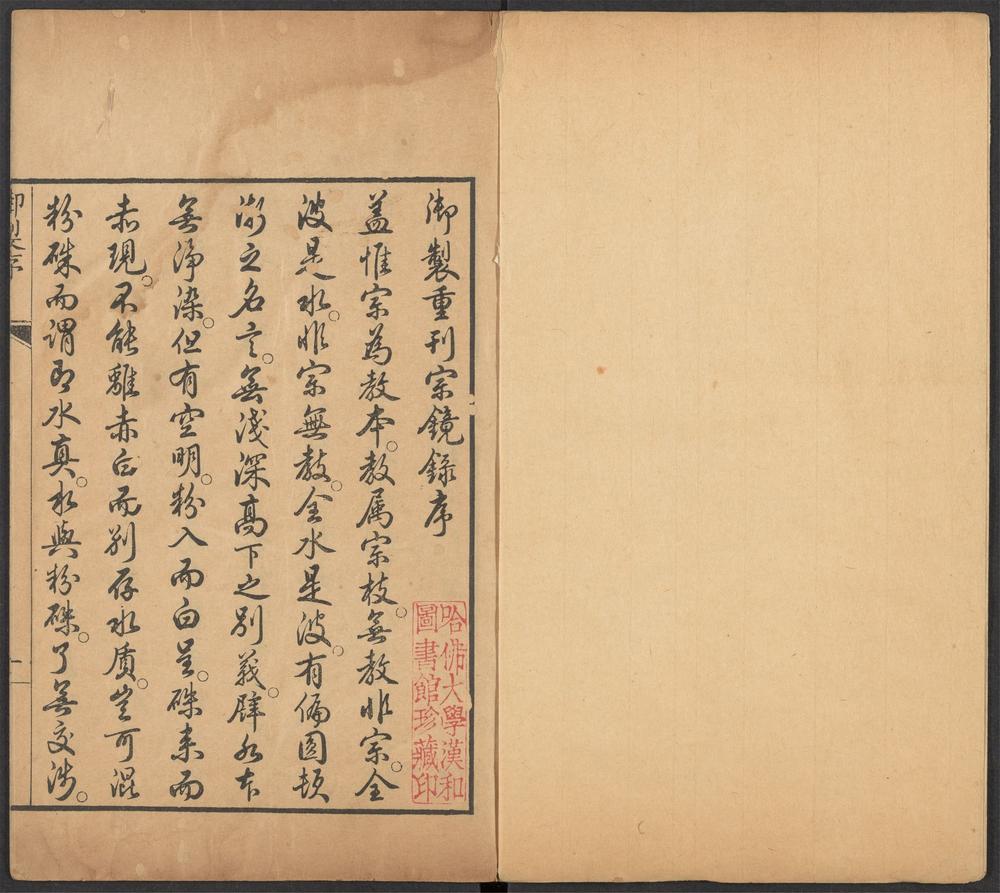 御製重刊宗鏡錄序
蓋惟宗為教本。教属宗枝。無教非宗。全
波是水。非宗無教。全水是波。有偏圓頓
漸之名言。無淺深高下之別義。譬如水本
無淨染。但有空明。粉入而白呈。硃来而
赤現。不能離赤白而别存水质。豈可混
粉硃而謂即水真。水與粉硃。了無交涉。
哈佛大學漢和
圖書館珍藏印